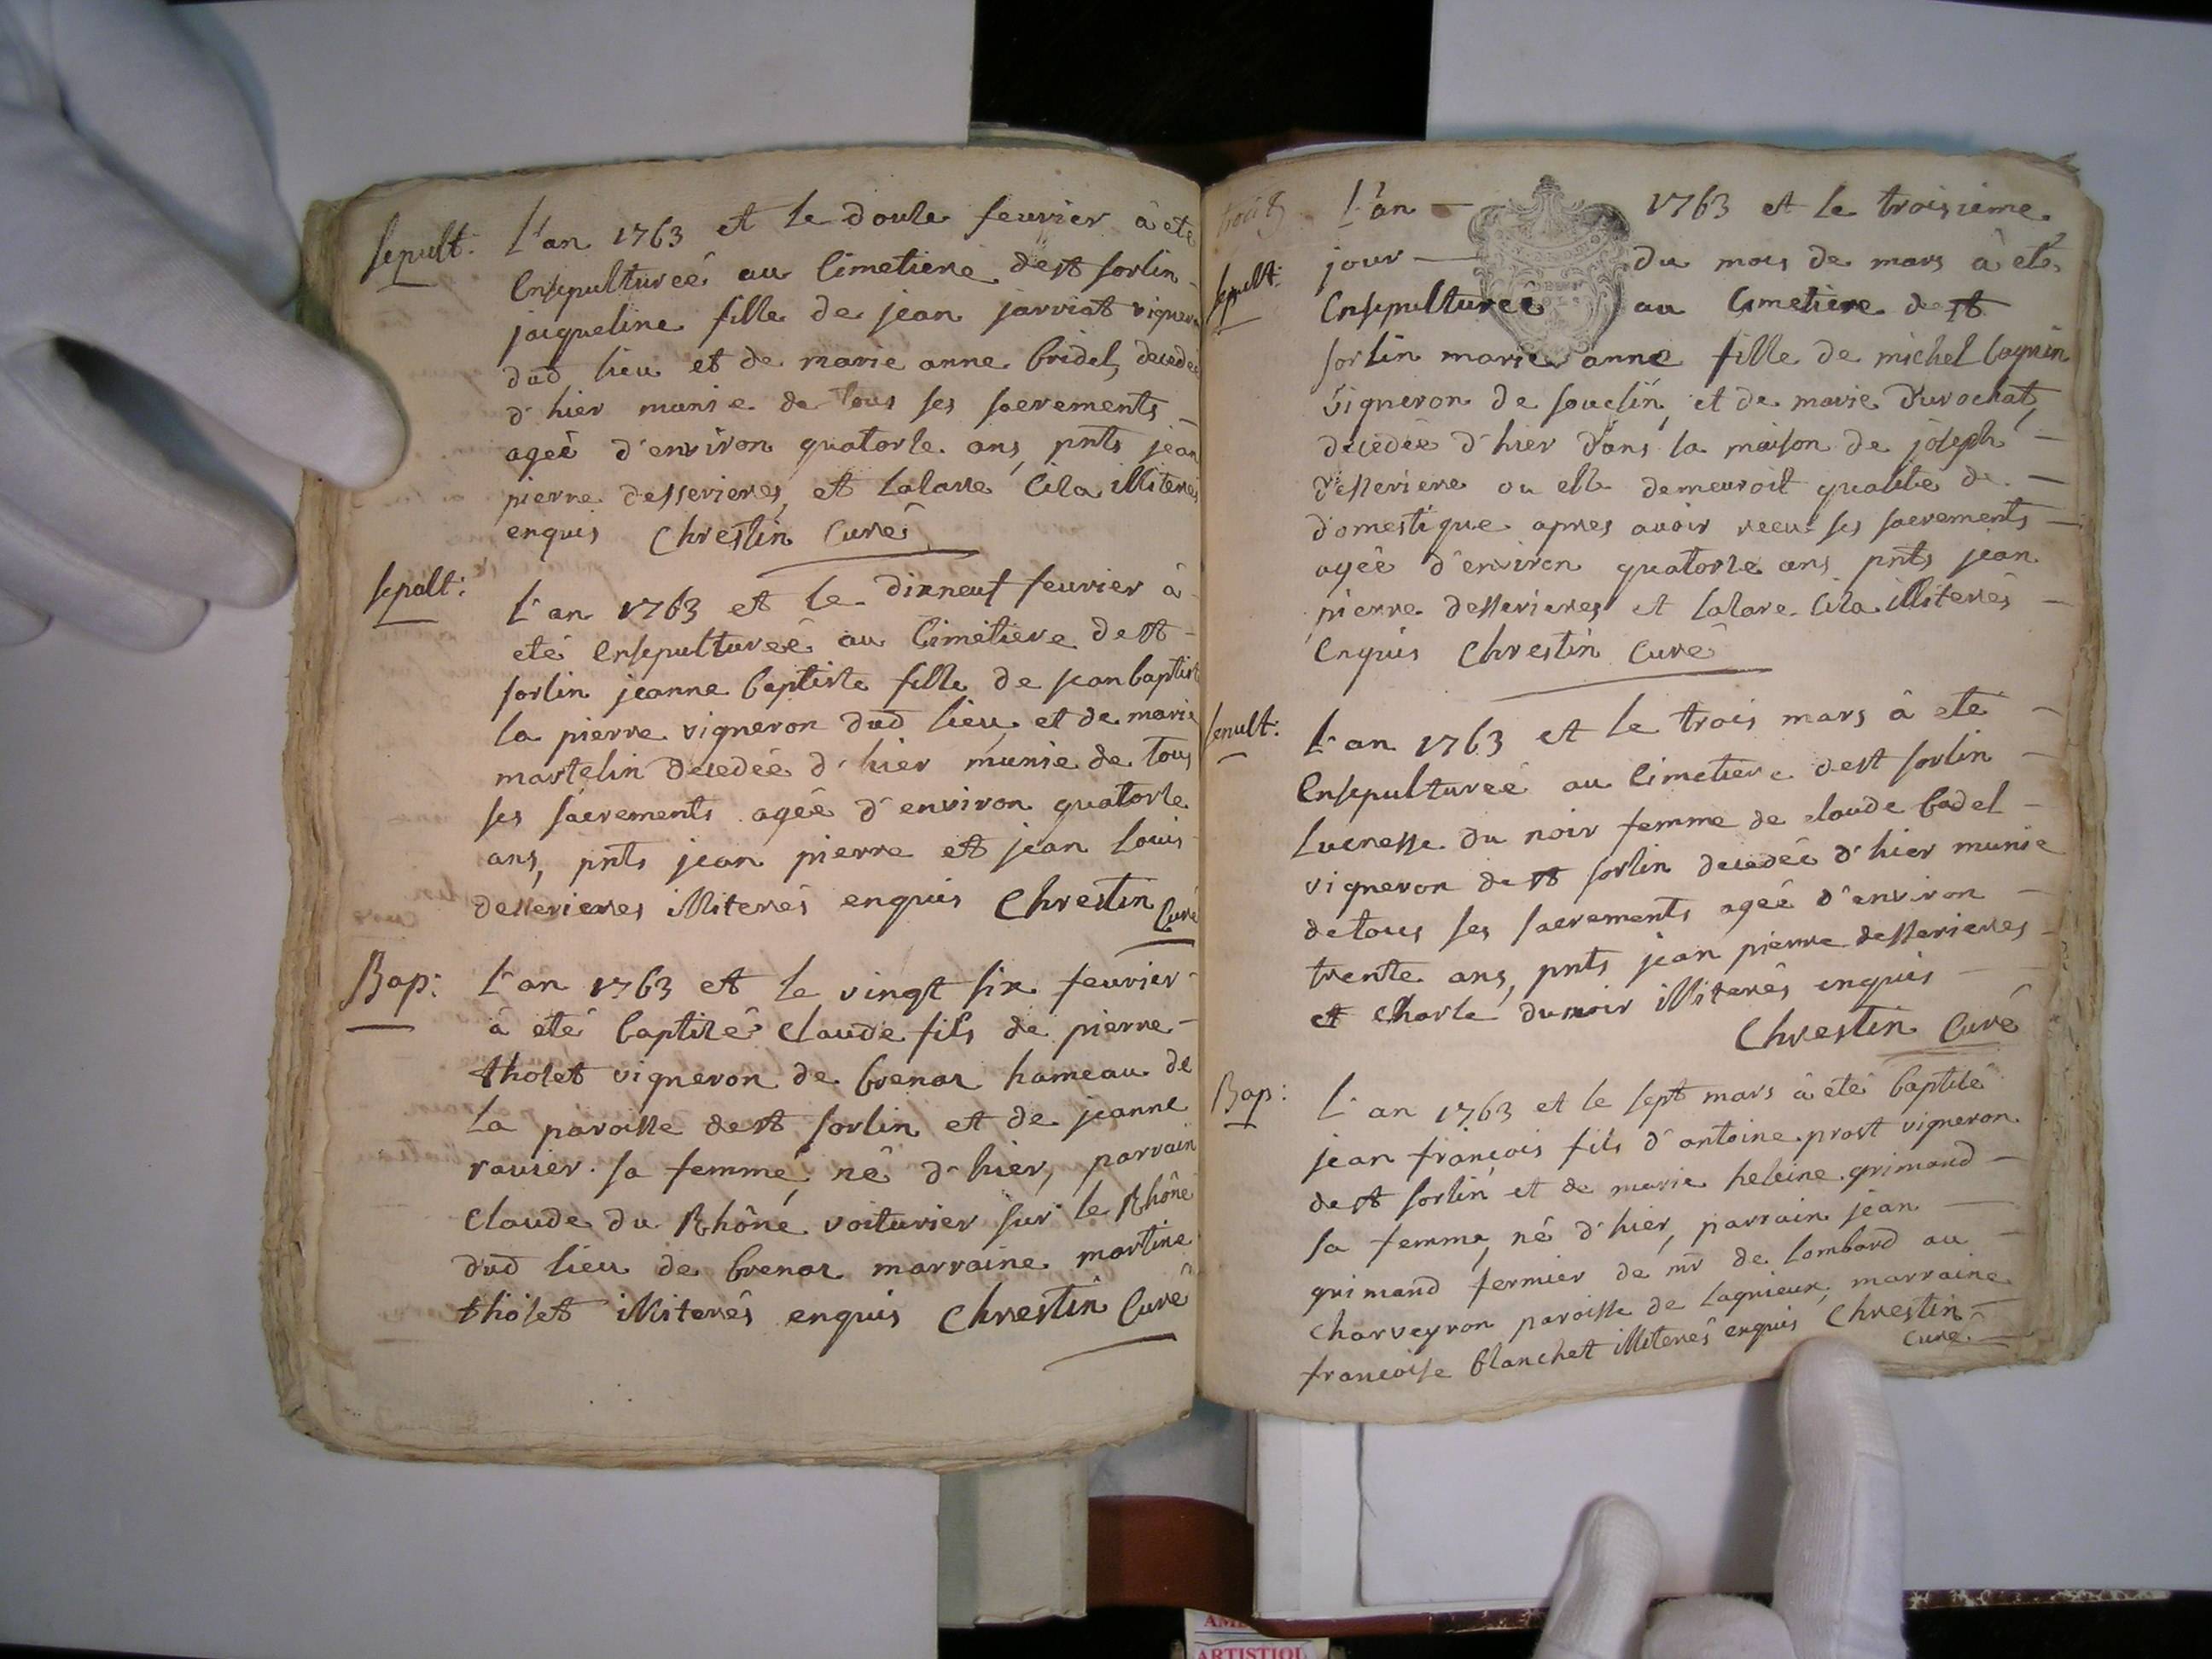 sepult:
L'an 1763 et le douze feuvrier à eté
ensepultureé au cimetiere de st sorlin
jacqueline fille de jean jarriat vigneron
dud lieu et de marie anne bridel, decedeé
d'hier munie de tous ses sacrements
ageé d'environ quatorze ans, pnts jean
pierre desserieres, et lazarre cila illiterés
enquis Chrestin Curé
sepult:
L'an 1763 et le dixneuf feuvrier à
eté ensepultureé au cimetiere de st
sorlin jeanne baptiste fille de jean baptiste
la pierre vigneron dud lieu, et de marie
martelin decedeé d'hier munie de tous
ses sacrements ageé d'environ quatorze
ans, pnts jean pierre et jean louis
desserieres illiterés enquis Chrestin
Curé
Bap:
L'an 1763 et le vingt six feuvrier
à eté baptizé claude fils de pierre
tholet vigneron de brenaz hameau de
la paroisse de st sorlin et de jeanne
ravier sa femme, né d'hier, parrain
claude du Rhône voiturier sur le Rhône
dud lieu de brenaz marraine martine
tholet illiterés enquis Chrestin Curé
L'an 1763 et le troisieme
jour du mois de mars à eté
sepult:
ensepultureé au cimetiere de st
sorlin marie anne fille de michel cagnin
vigneron de souclin, et de marie durochat,
decedeé d'hier dans la maison de joseph
desseriere ou elle demeuroit qualité de
domestique apres avoir receu ses sacrements
ageé d'environ quatorze ans pnts jean
pierre desserieres et lazare cila illiterés
enquis Chrestin Curé
sepult:
L'an 1763 et le trois mars à eté
ensepultureé au cimetiere de st sorlin
lucresse du noir femme de claude badel
vigneron de st sorlin decedeé d'hier munie
de tous ses sacrements ageé d'environ
trente ans, pnts jean pierre desserieres
et charle dunoir illiterés enquis
Chrestin Curé
Bap:
L'an 1763 et le sept mars à eté baptizé
jean françois fils d'antoine prost vigneron
de st sorlin, et de marie heleine grimand
sa femme, né d'hier, parrain jean
grimand fermier de mr de lombard au
charveyron paroisse de lagnieux, marraine
françoise blanchet illiterés enquis Chrestin
Curé
ARTISTIQU